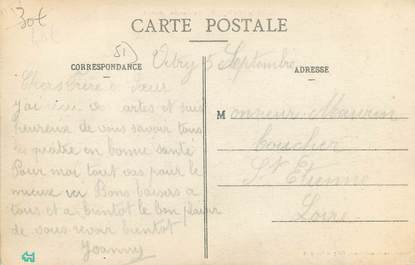 30€
51
CARTE POSTALE
CORRESPONDANCE
ADRESSE
Vitry 5 Septembre
Chers Frère & Sœur
J'ai de cartes et suis
heureux de vous savoir tous
les quatre en bonne santé
Pour moi tout vas pour le
mieux ici Bons baisers a
tous et a bientot le bon plaisir
de vous revoir bientot
Joanny
Monsieur
St Etienne
Loire